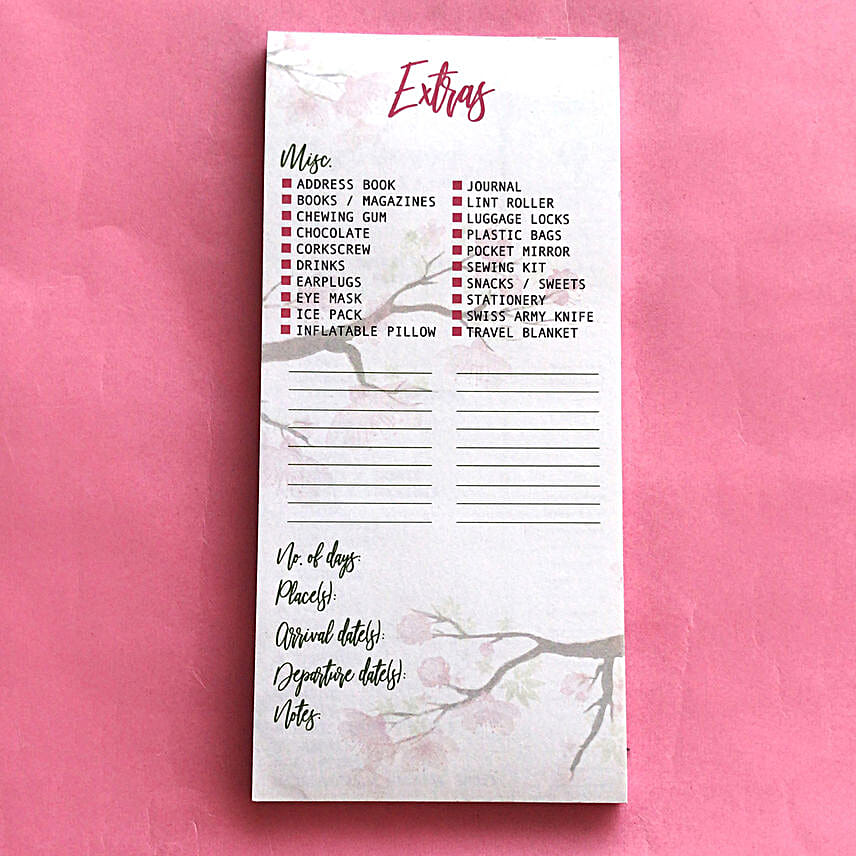 Extras
Misc.
ADDRESS BOOK
BOOKS / MAGAZINES
CHEWING GUM
CHOCOLATE
CORKSCREW
DRINKS
EARPLUGS
EYE MASK
ICE PACK
INFLATABLE PILLOW
JOURNAL
LINT ROLLER
LUGGAGE LOCKS
PLASTIC BAGS
POCKET MIRROR
SEWING KIT
SNACKS / SWEETS
STATIONERY
SWISS ARMY KNIFE
TRAVEL BLANKET
No. of days:
Place(s):
Arrival date(s):
Departure date(s):
Notes: